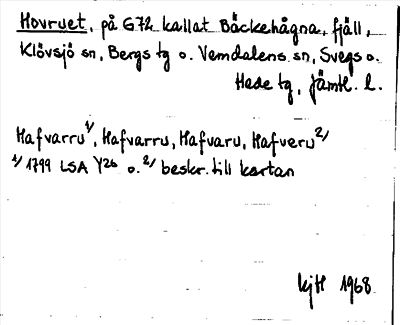 Hovruet, på G72 kallat Bäckehågna, fjäll,
Klövsjö sn, Bergs tg o. Vemdalens sn, Svegs o.
Hede tg, Jämtl. l.
Hafvarru 1/, Hafvarru, Hafvaru, Hafveru 2/
1/ 1799 LSA Y26 o. 2/ beskr. till kartan
kjtl 1968